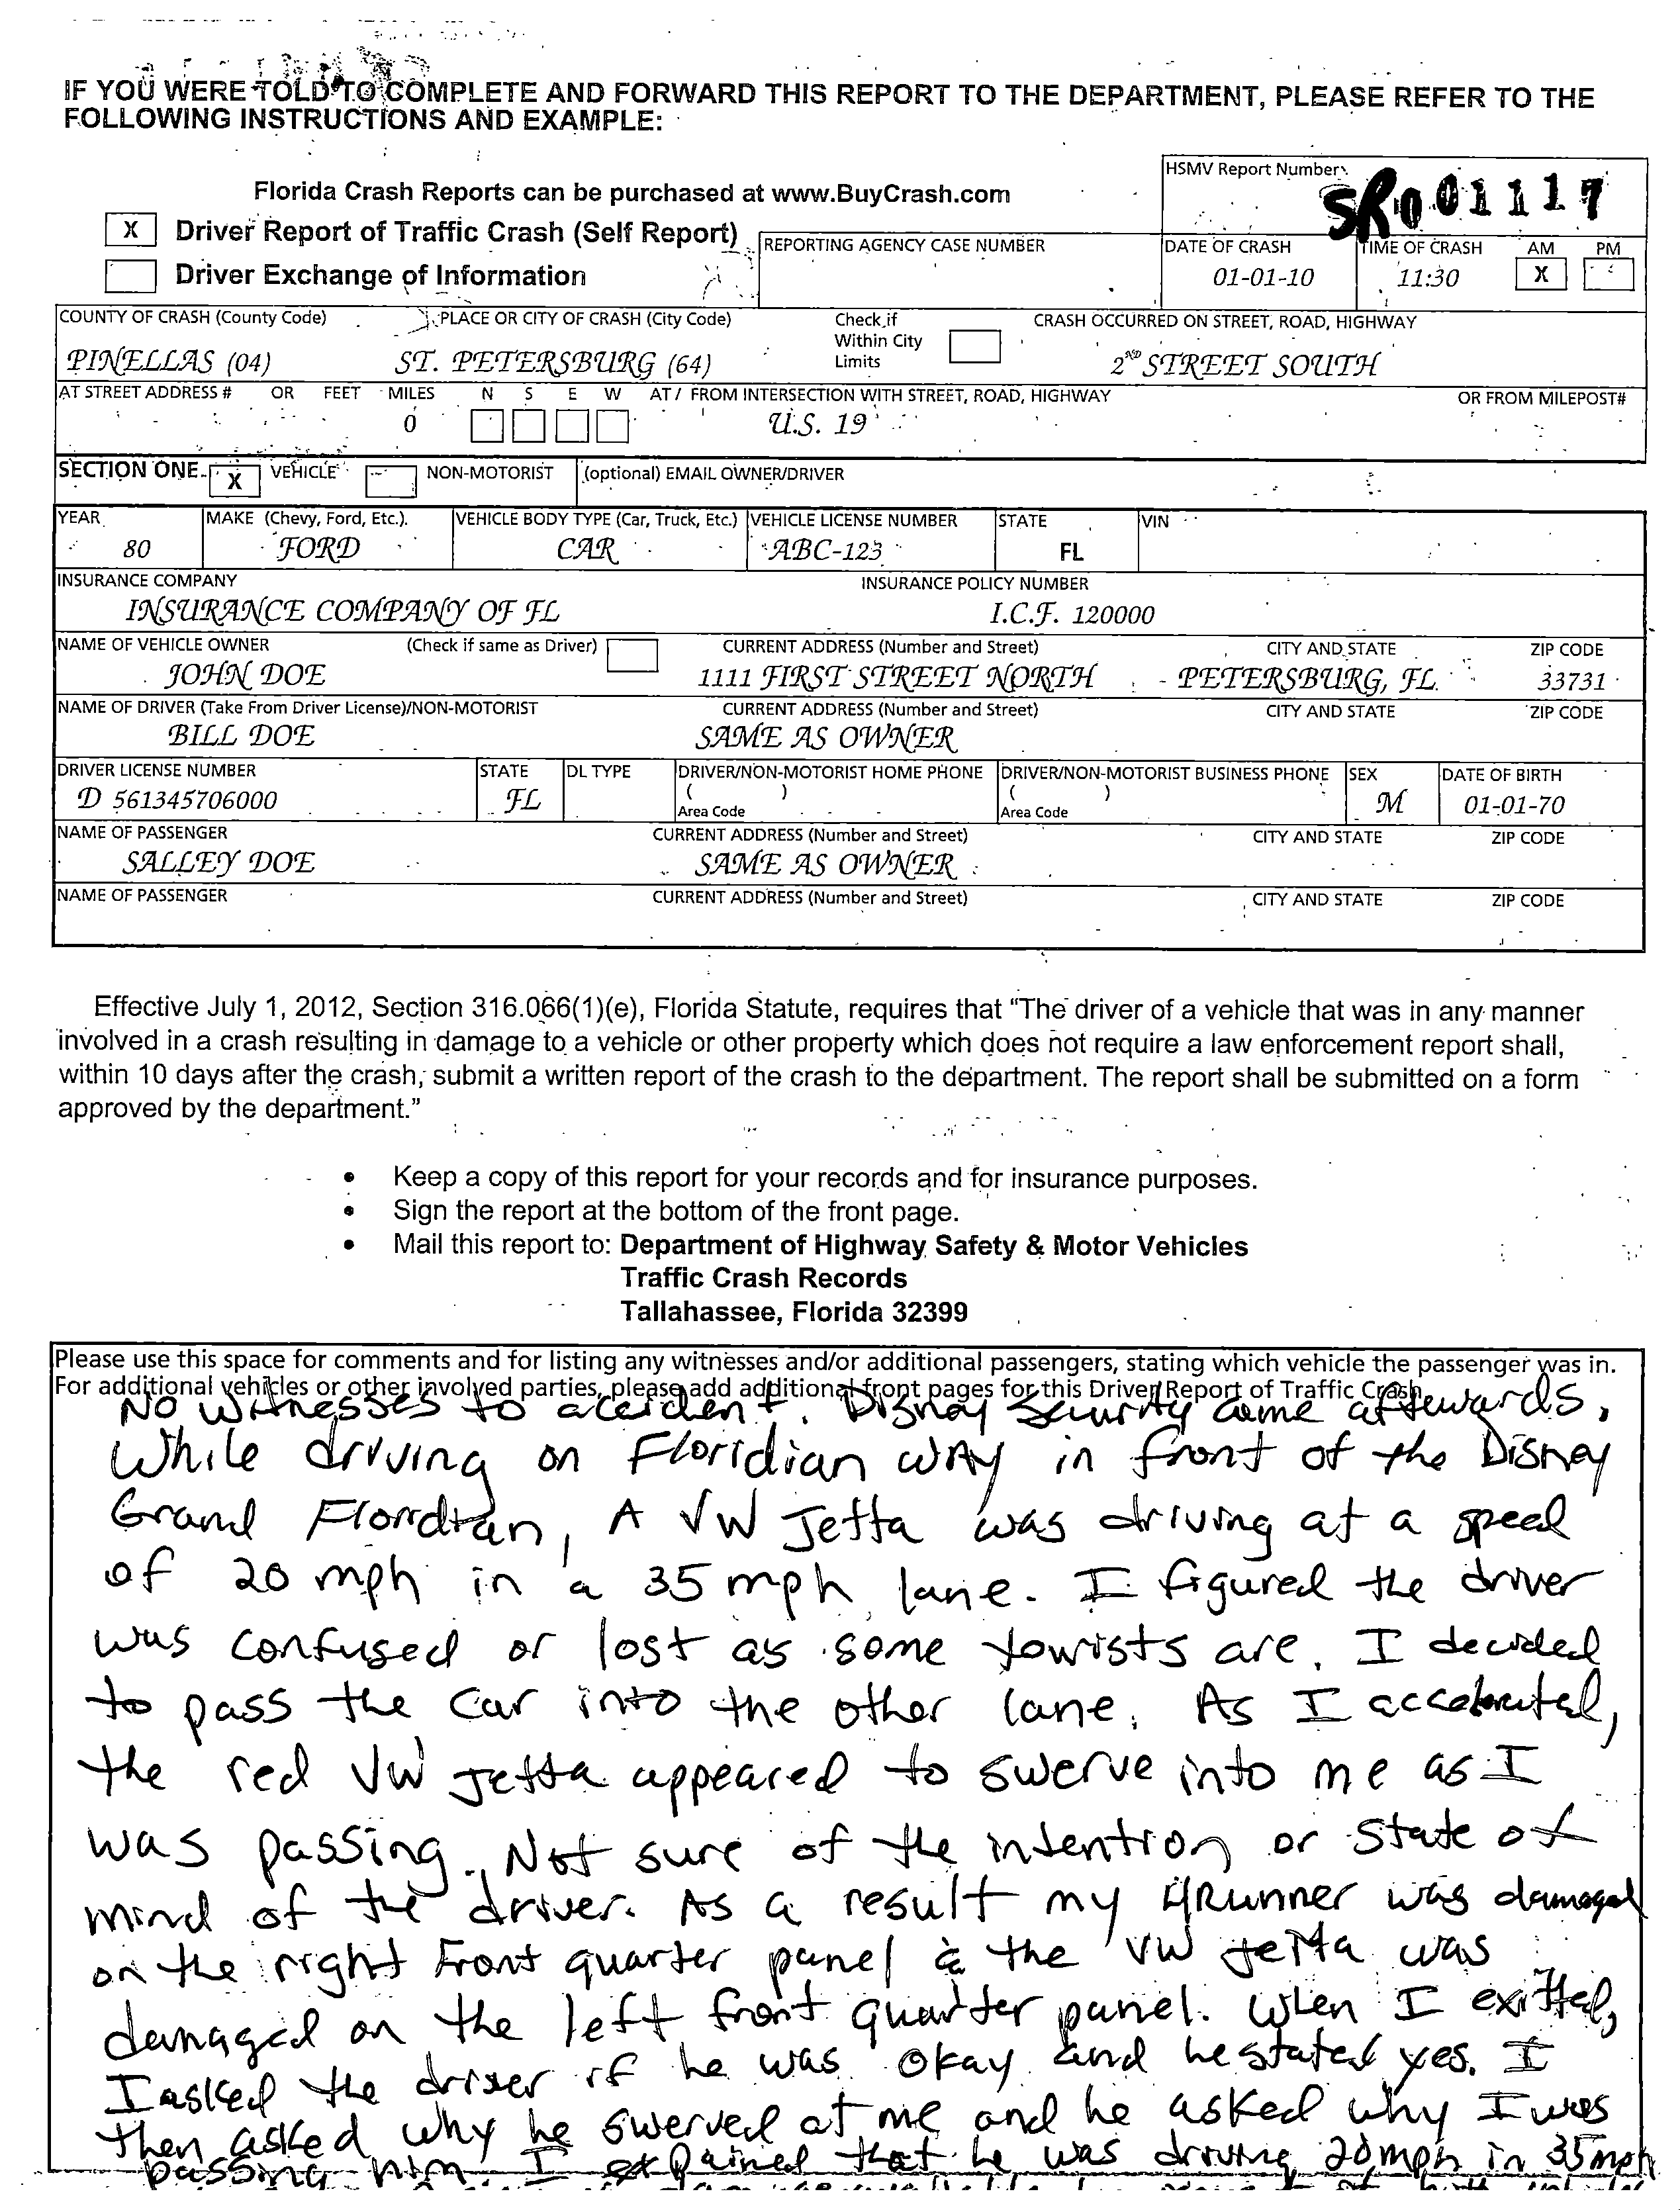 IF YOU WERE TOLD TO COMPLETE AND FORWARD THIS REPORT TO THE DEPARTMENT, PLEASE REFER TO THE
FOLLOWING INSTRUCTIONS AND EXAMPLE:
HSMV Report Number
SR0 01117
Florida Crash Reports can be purchased at www.BuyCrash.com
X Driver Report of Traffic Crash (Self Report)
Driver Exchange of Information
REPORTING AGENCY CASE NUMBER
DATE OF CRASH TIME OF CRASH AM PM
01-01-10 11:30 X
COUNTY OF CRASH (County Code) PLACE OR CITY OF CRASH (City Code) Check if Within City Limits CRASH OCCURRED ON STREET, ROAD, HIGHWAY
PINELLAS (04) ST. PETERSBURG (64) 2ND STREET SOUTH
AT STREET ADDRESS # OR FEET MILES N S E W AT / FROM INTERSECTION WITH STREET, ROAD, HIGHWAY OR FROM MILEPOST#
0 U.S. 19
SECTION ONE X VEHICLE NON-MOTORIST (optional) EMAIL OWNER/DRIVER
YEAR MAKE (Chevy, Ford, Etc.) VEHICLE BODY TYPE (Car, Truck, Etc.) VEHICLE LICENSE NUMBER STATE VIN
80 FORD CAR ABC-123 FL
INSURANCE COMPANY INSURANCE POLICY NUMBER
INSURANCE COMPANY OF FL I.C.F. 120000
NAME OF VEHICLE OWNER (Check if same as Driver) CURRENT ADDRESS (Number and Street) CITY AND STATE ZIP CODE
JOHN DOE 1111 FIRST STREET NORTH PETERSBURG, FL. 33731
NAME OF DRIVER (Take From Driver License)/NON-MOTORIST CURRENT ADDRESS (Number and Street) CITY AND STATE ZIP CODE
BILL DOE SAME AS OWNER
DRIVER LICENSE NUMBER STATE DL TYPE DRIVER/NON-MOTORIST HOME PHONE DRIVER/NON-MOTORIST BUSINESS PHONE SEX DATE OF BIRTH
D 561345706000 FL ( ) ( ) M 01-01-70
Area Code Area Code
NAME OF PASSENGER CURRENT ADDRESS (Number and Street) CITY AND STATE ZIP CODE
SALLEY DOE SAME AS OWNER
NAME OF PASSENGER CURRENT ADDRESS (Number and Street) CITY AND STATE ZIP CODE
Effective July 1, 2012, Section 316.066(1)(e), Florida Statute, requires that “The driver of a vehicle that was in any manner
involved in a crash resulting in damage to a vehicle or other property which does not require a law enforcement report shall,
within 10 days after the crash, submit a written report of the crash to the department. The report shall be submitted on a form
approved by the department.”
• Keep a copy of this report for your records and for insurance purposes.
• Sign the report at the bottom of the front page.
• Mail this report to: Department of Highway Safety & Motor Vehicles
Traffic Crash Records
Tallahassee, Florida 32399
Please use this space for comments and for listing any witnesses and/or additional passengers, stating which vehicle the passenger was in.
For additional vehicles or other involved parties, please add additional front pages for this Driver Report of Traffic Crash.
No witnesses to accident. Disney Security came afterwards.
While driving on Floridian way in front of the Disney
Grand Floridian, A VW Jetta was driving at a speed
of 20 mph in a 35 mph lane. I figured the driver
was confused or lost as some tourists are. I decided
to pass the car into the other lane. As I accelerated,
the red VW Jetta appeared to swerve into me as I
was passing. Not sure of the intention or state of
mind of the driver. As a result my 4Runner was damaged
on the right front quarter panel & the VW Jetta was
damaged on the left front quarter panel. When I exitted,
I asked the driver if he was okay and he stated yes. I
then asked why he swerved at me and he asked why I was
passing him. I explained that he was driving 20mph in 35mph